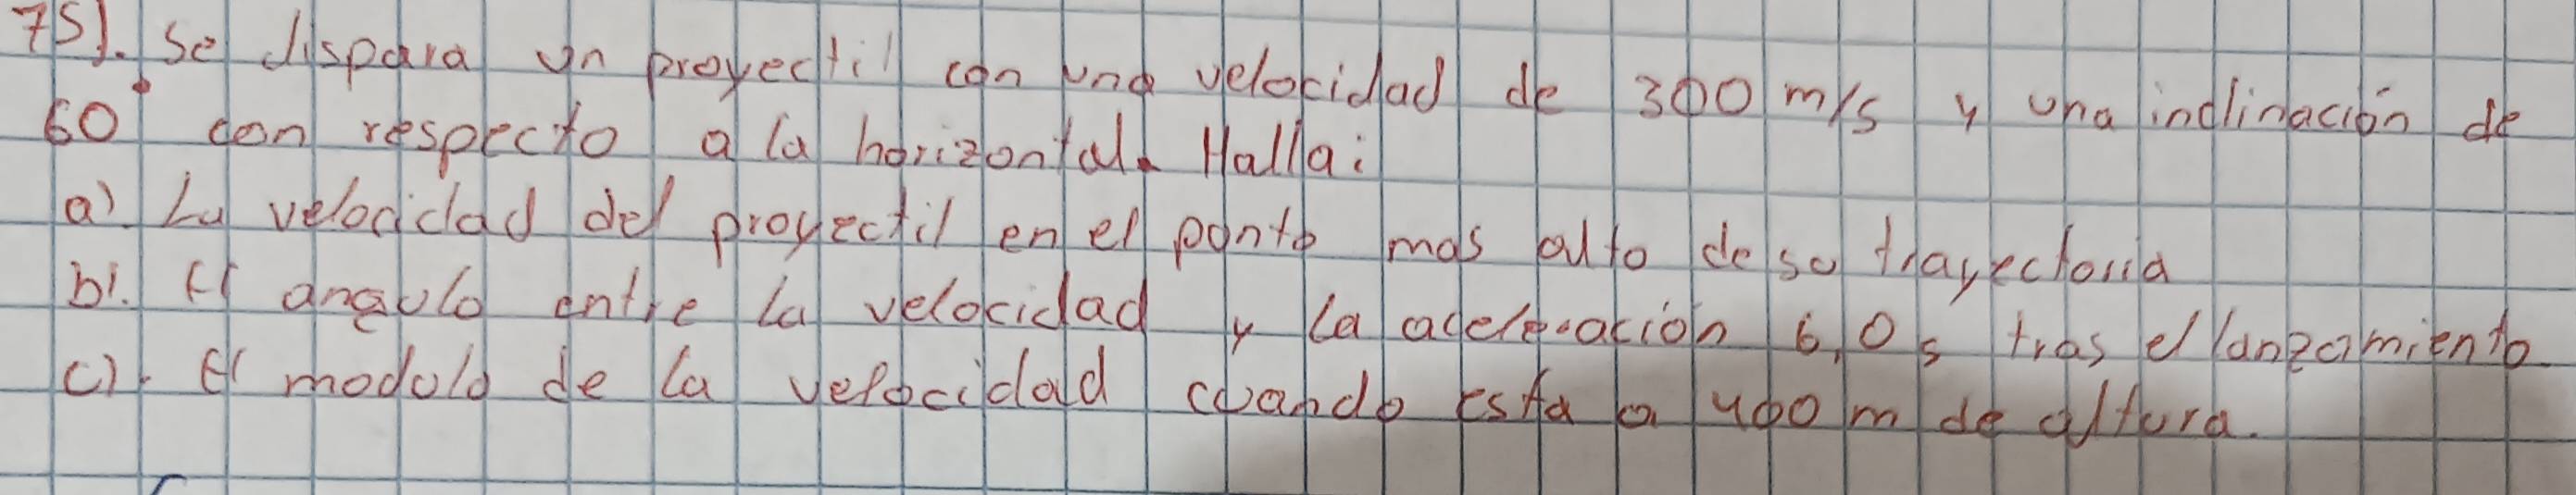 75). Se dispara un proyectil con una velocidad de 300 m/s y una inclinación de
60° con respecto a la horizontal. Halla:
a). La velocidad del proyectil en el punto mas alto de su trayectoria
b). El angulo entre la velocidad y la aceleración 6,0 s tras el lanzamiento
c). El modulo de la velocidad cuando esta a 400 m de altura.